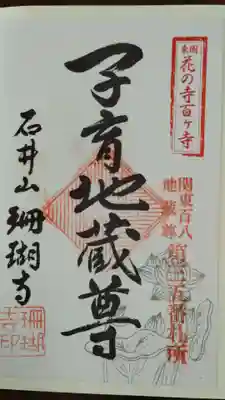 関東
花の寺百ヶ寺
関東百八
地蔵尊
五番札所
子育地蔵尊
石井山 珊瑚寺
珊瑚
寺印